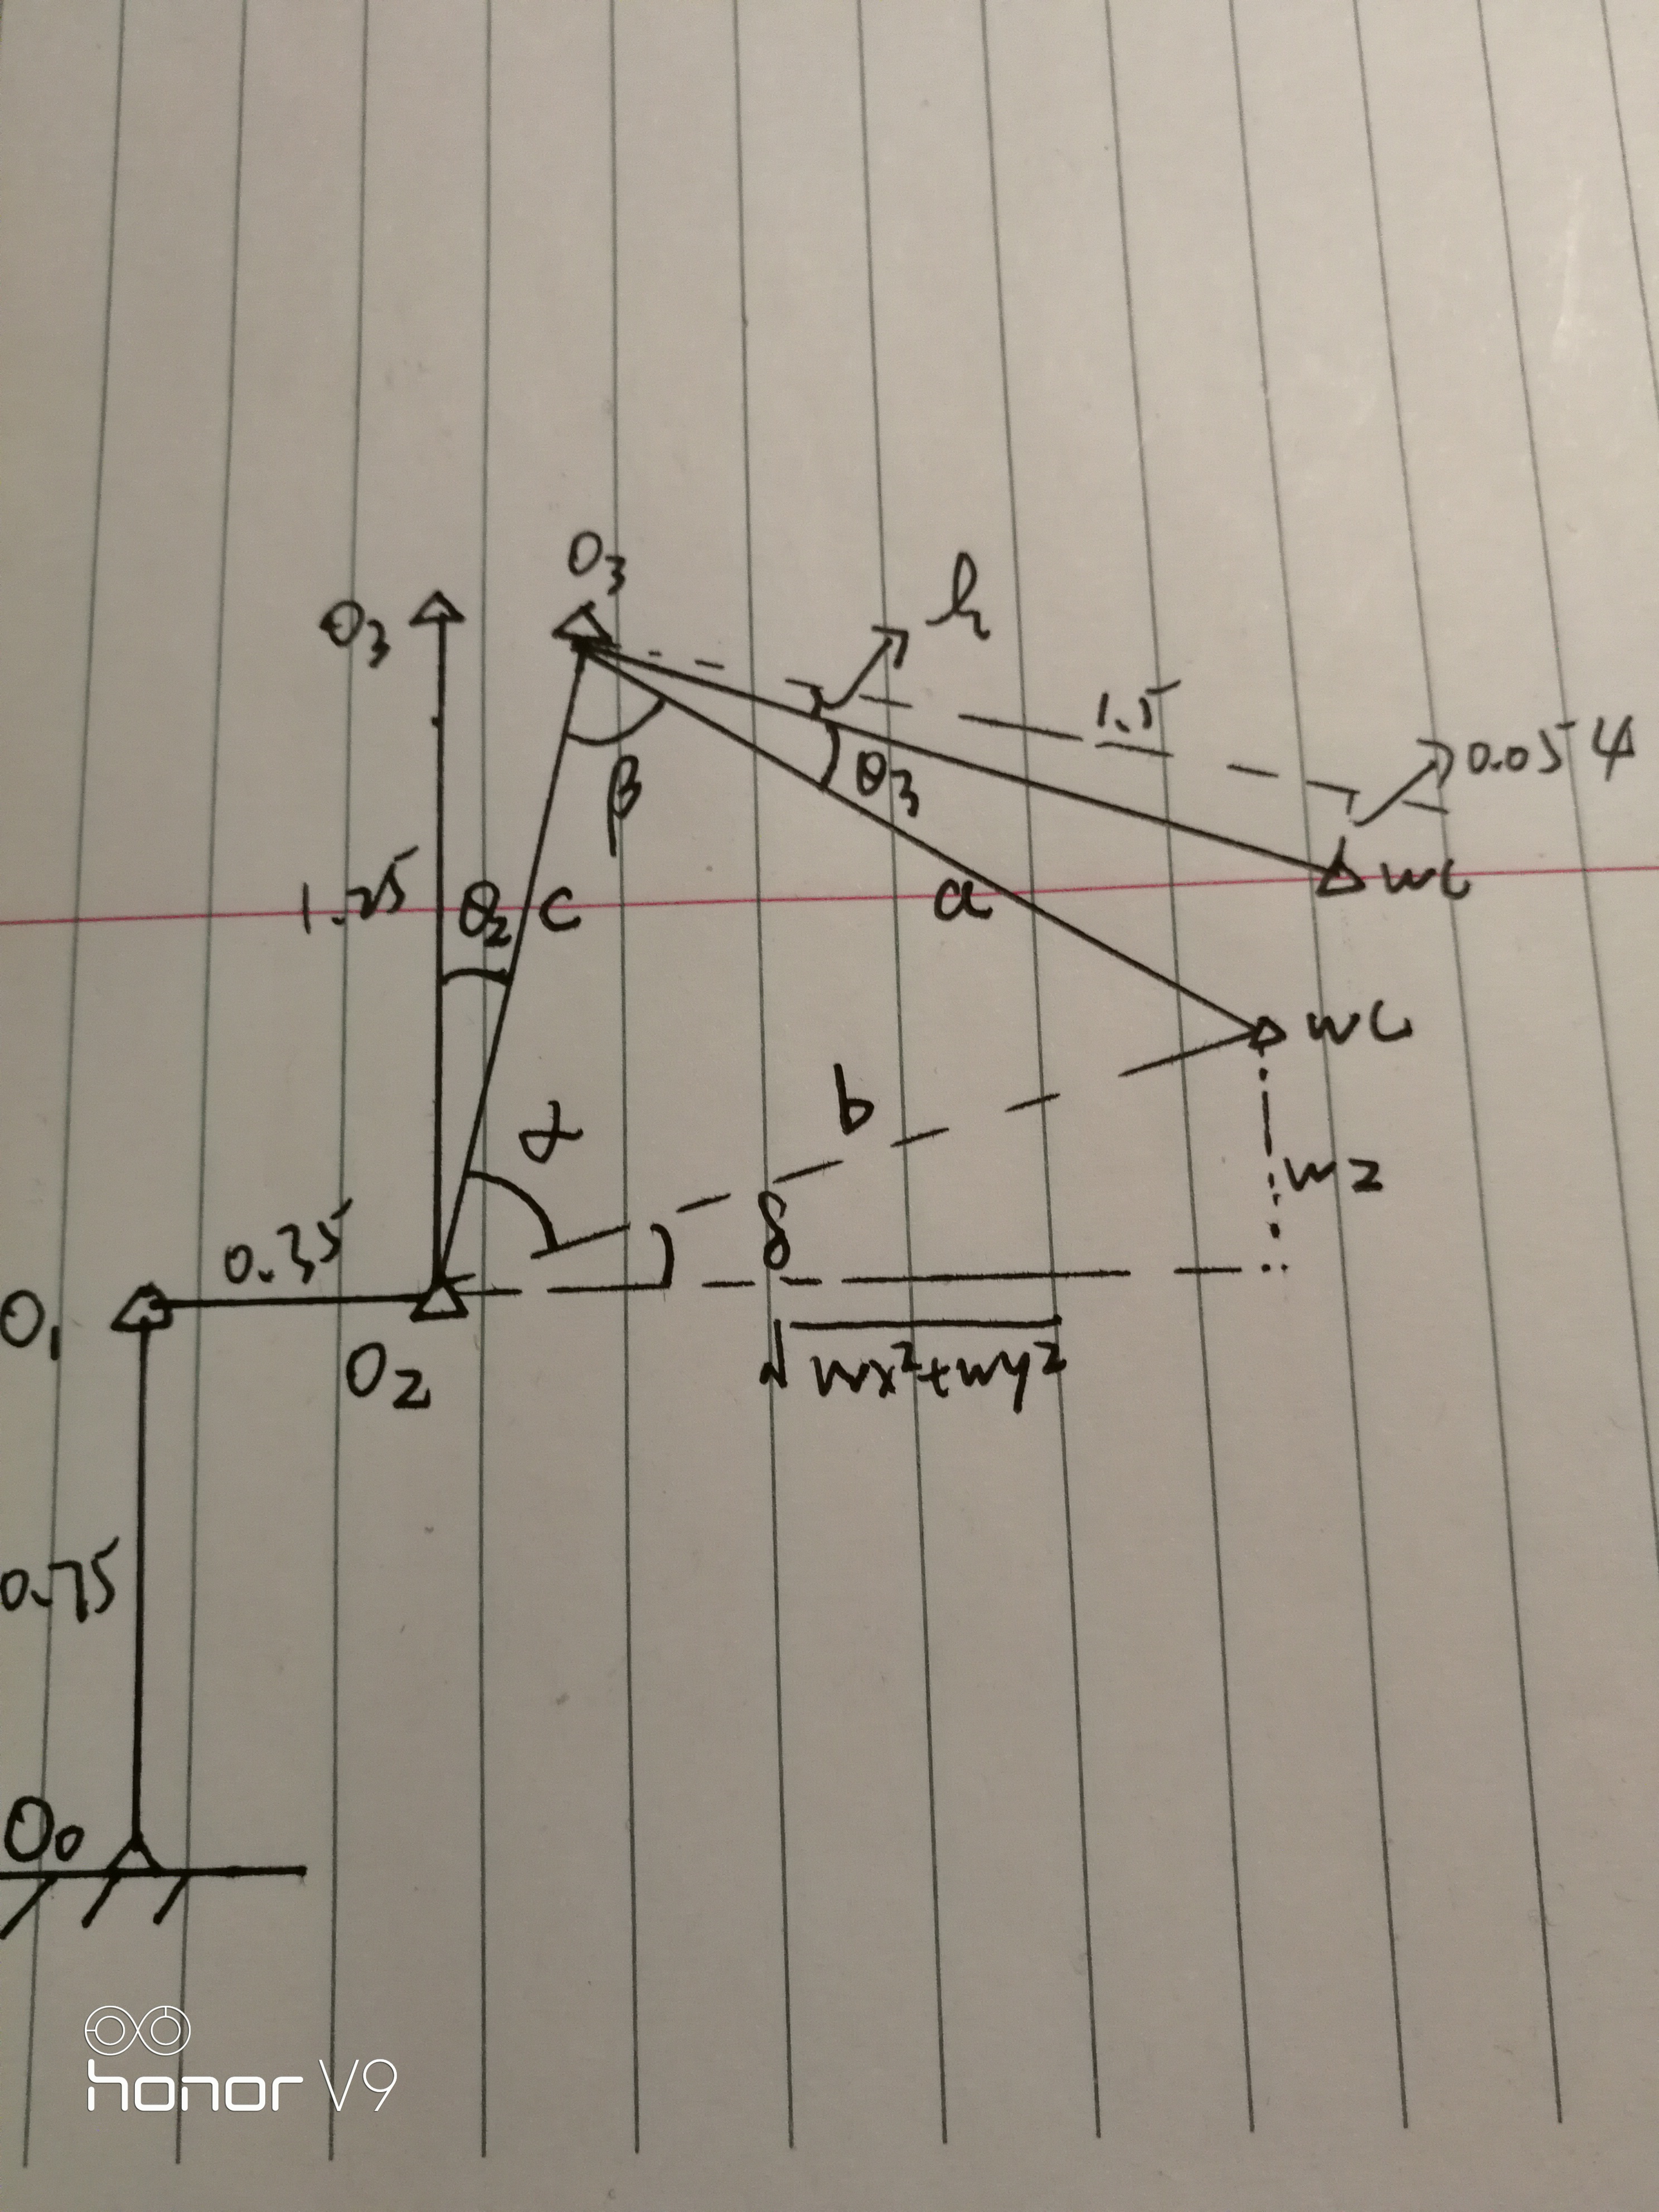 O3
O3
h
1.5
0.054
θ3
β
1.25
θ2
c
a
wc
wc
α
b
wz
δ
0.35
O1
O2
√wx²+wy²
0.75
O0
honor V9